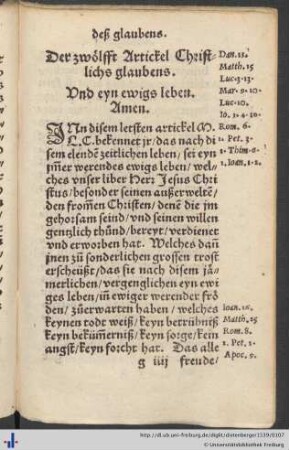 deß glaubens.
Der zwölfft Artickel Christ-
lichs glaubens.
Vnd eyn ewigs leben.
Amen.
INn disem letsten artickel M.
L.C. bekennet jr/ das nach di
sem elendē zeitlichen leben/ sei eyn
jm̄er werendes ewigs leben/ wel-
ches vnser liber Herr Jesus Chri
stus/ besonder seinen außerweltē/
den from̄en Christen/ denē die jm
gehorsam seind/ vnd seinen willen
gentzlich thünd/ bereyt/ verdienet
vnd erworben hat. Welches dañ
jnen zů sonderlichen grossen trost
erscheüßt/ das sie nach disem jä-
merlichen/ vergenglichen eyn ewi
ges leben/ im̄ ewiger werender frö
den/ zůerwarten haben/ welches
keynen todt weiß/ keyn betrübniß
keyn bekům̄erniß/ keyn sorge/ kein
angst/ keyn forcht hat. Das alle
g iiij freude/
Dan. 12.
Matth. 25
Luc. 3. 13.
Mar. 9. 10.
Luc. 10.
Io. 3. 4. 10.
Rom. 6.
1. Pet. 3.
1. Thim. 6.
1. Ioan. 1. 2.
Ioan. 16.
Matth. 25
Rom. 8.
1. Pet. 1.
Apoc. 5.
http://dl.ub.uni-freiburg.de/diglit/dietenberger1539/0107
© Universitätsbibliothek Freiburg